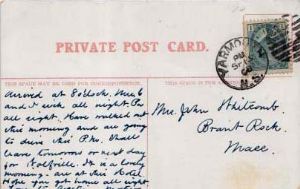 PRIVATE POST CARD.
THIS SPACE MAY BE USED FOR CORRESPONDENCE.
THIS SPACE
YARMOU
PM
N.S.
Arrived at 8 o'clock,
and I sick all night
all right. Have walked out
this morning and are going
to drive this P.M. Shall
leave tomorrow or next day
for Wolfville. It is a lovely
morning - are at this Hotel
Hope you got home all right
Mr. John Whitcomb
Brant Rock
Mass.